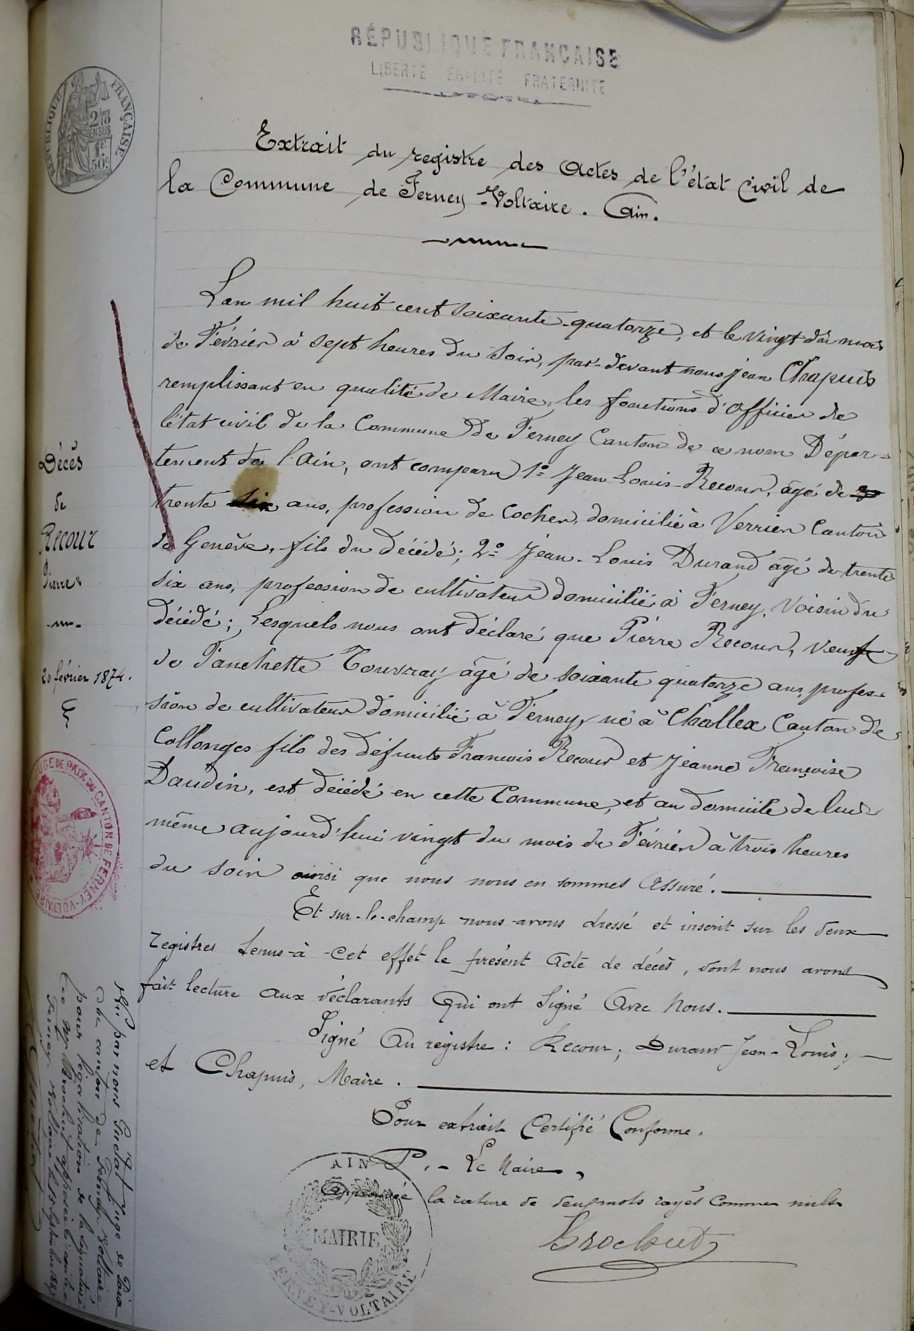 RÉPUBLIQUE FRANÇAISE
LIBERTÉ ÉGALITÉ FRATERNITÉ
RÉPUBLIQUE FRANÇAISE
Extrait du registre des actes de l'état Civil de
la Commune de Ferney-Voltaire. Ain.
L'an mil huit cent soixante-quatorze, et le vingt du mois
de Février à sept heures du soir, par-devant nous Jean Chapuis
remplissant en qualité de Maire, les fonctions d'officier de
l'état civil de la Commune de Ferney Canton de ce nom Dépar-
tement de l'Ain, ont comparu 1º Jean Louis Recour, âgé de
trente six ans, profession de Cocher, domicilié à Verrier Canton
de Genève, fils du décédé; 2º Jean-Louis Durand âgé de trente
six ans, profession de cultivateur domicilié à Ferney, voisin du
décédé; Lesquels nous ont déclaré que Pierre Recour, veuf
de Fanchette Tourray âgé de soixante quatorze ans, profes-
sion de cultivateur domicilié à Ferney, né à Challex Canton de
Collonges fils des défunts François Recour et Jeanne Françoise
Daudin, est décédé en cette Commune, et au domicile de lui
même aujourd'hui vingt du mois de Février à trois heures
du soir ainsi que nous nous en sommes assuré.
Et sur-le-champ nous avons dressé et inscrit sur les deux
registres tenus à cet effet le présent acte de décès, dont nous avons
fait lecture aux déclarants qui ont signé avec nous.
Signé au registre: Recour, Durand Jean-Louis,
et Chapuis, Maire.
Pour extrait Certifié Conforme.
P. Le Maire,
Approuvé la rature de deux mots rayés comme nuls
Brochut
Décès
de
Recour
Pierre
20 février 1874.
JUGE DE PAIX DU CANTON DE FERNEY-VOLTAIRE
Vu par nous Juge de Paix
du canton de Ferney-Voltaire
pour légalisation de la signature
AIN
MAIRIE
FERNEY-VOLTAIRE